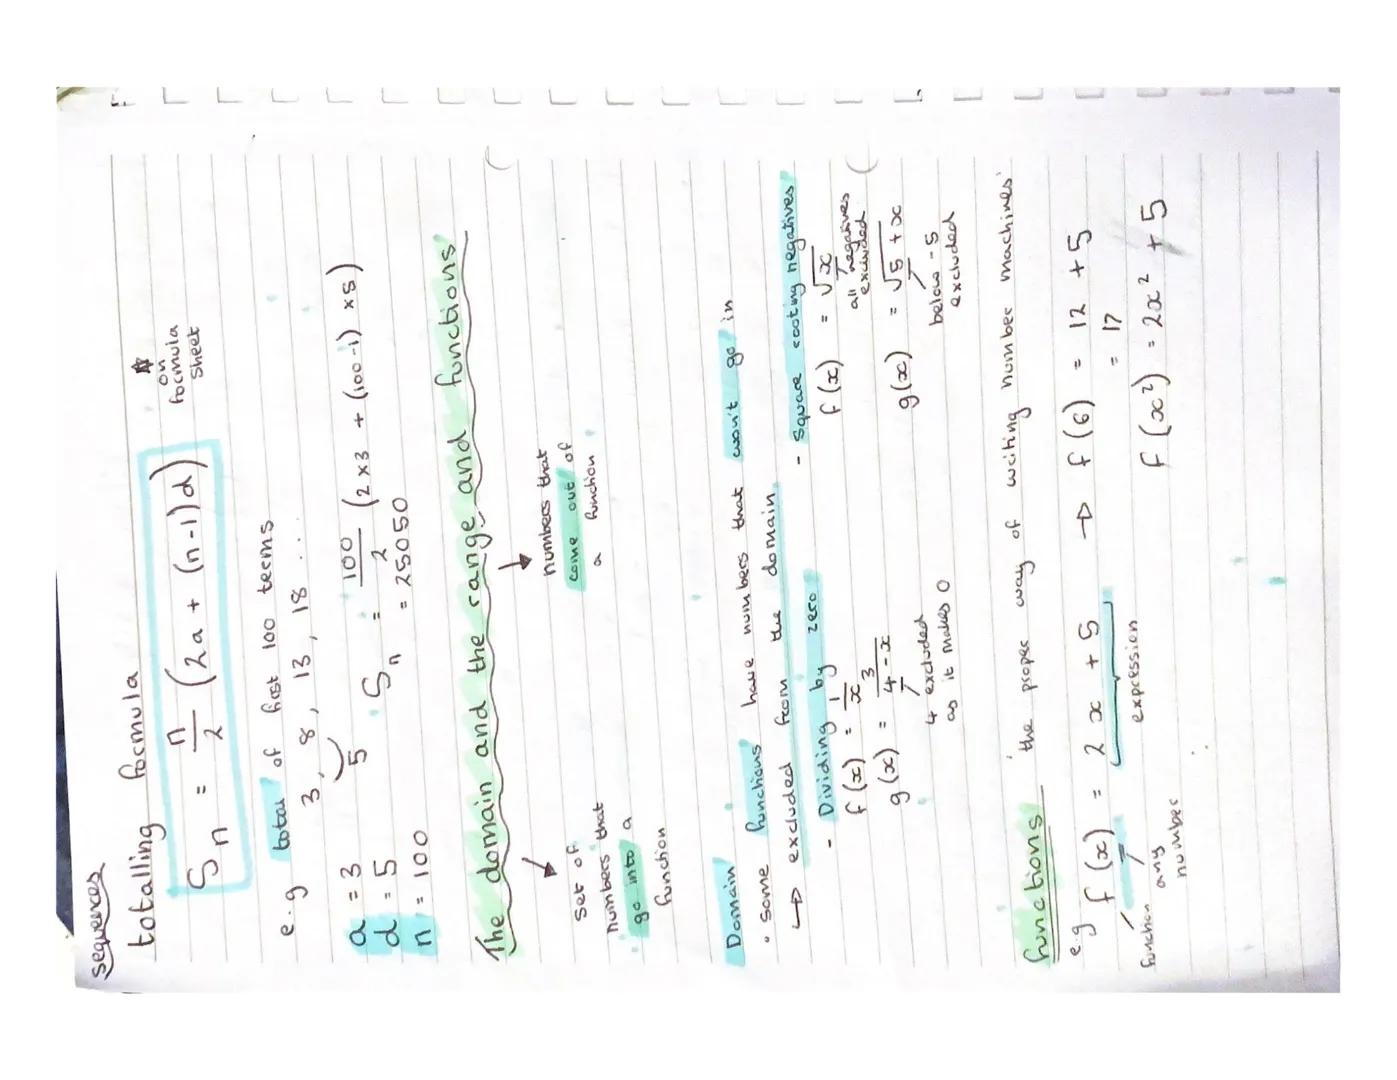 sequences
totalling formula
Sn = n/2 (2a + (n-1)d)
* on formula sheet
e.g total of first 100 terms
3, 8, 13, 18 ...
5
a = 3
d = 5
n = 100
Sn = 100/2 (2×3 + (100-1) ×5)
= 25050
The domain and the range and functions
set of
numbers that
go into a
function
numbers that
come out of
a function
Domain
• Some functions have numbers that won't go in
↳ excluded from the domain
- Dividing by zero
f(x) = 1/x
g(x) = 3/4-x
4 excluded
as it makes 0
- Square rooting negatives
f(x) = √x
all negatives
excluded
g(x) = √5+x
below -5
excluded
functions 'the proper way of writing number machines'
e.g f(x) = 2x + 5 → f(6) = 12 + 5
= 17
function any number
expression
f(x²) = 2x² + 5